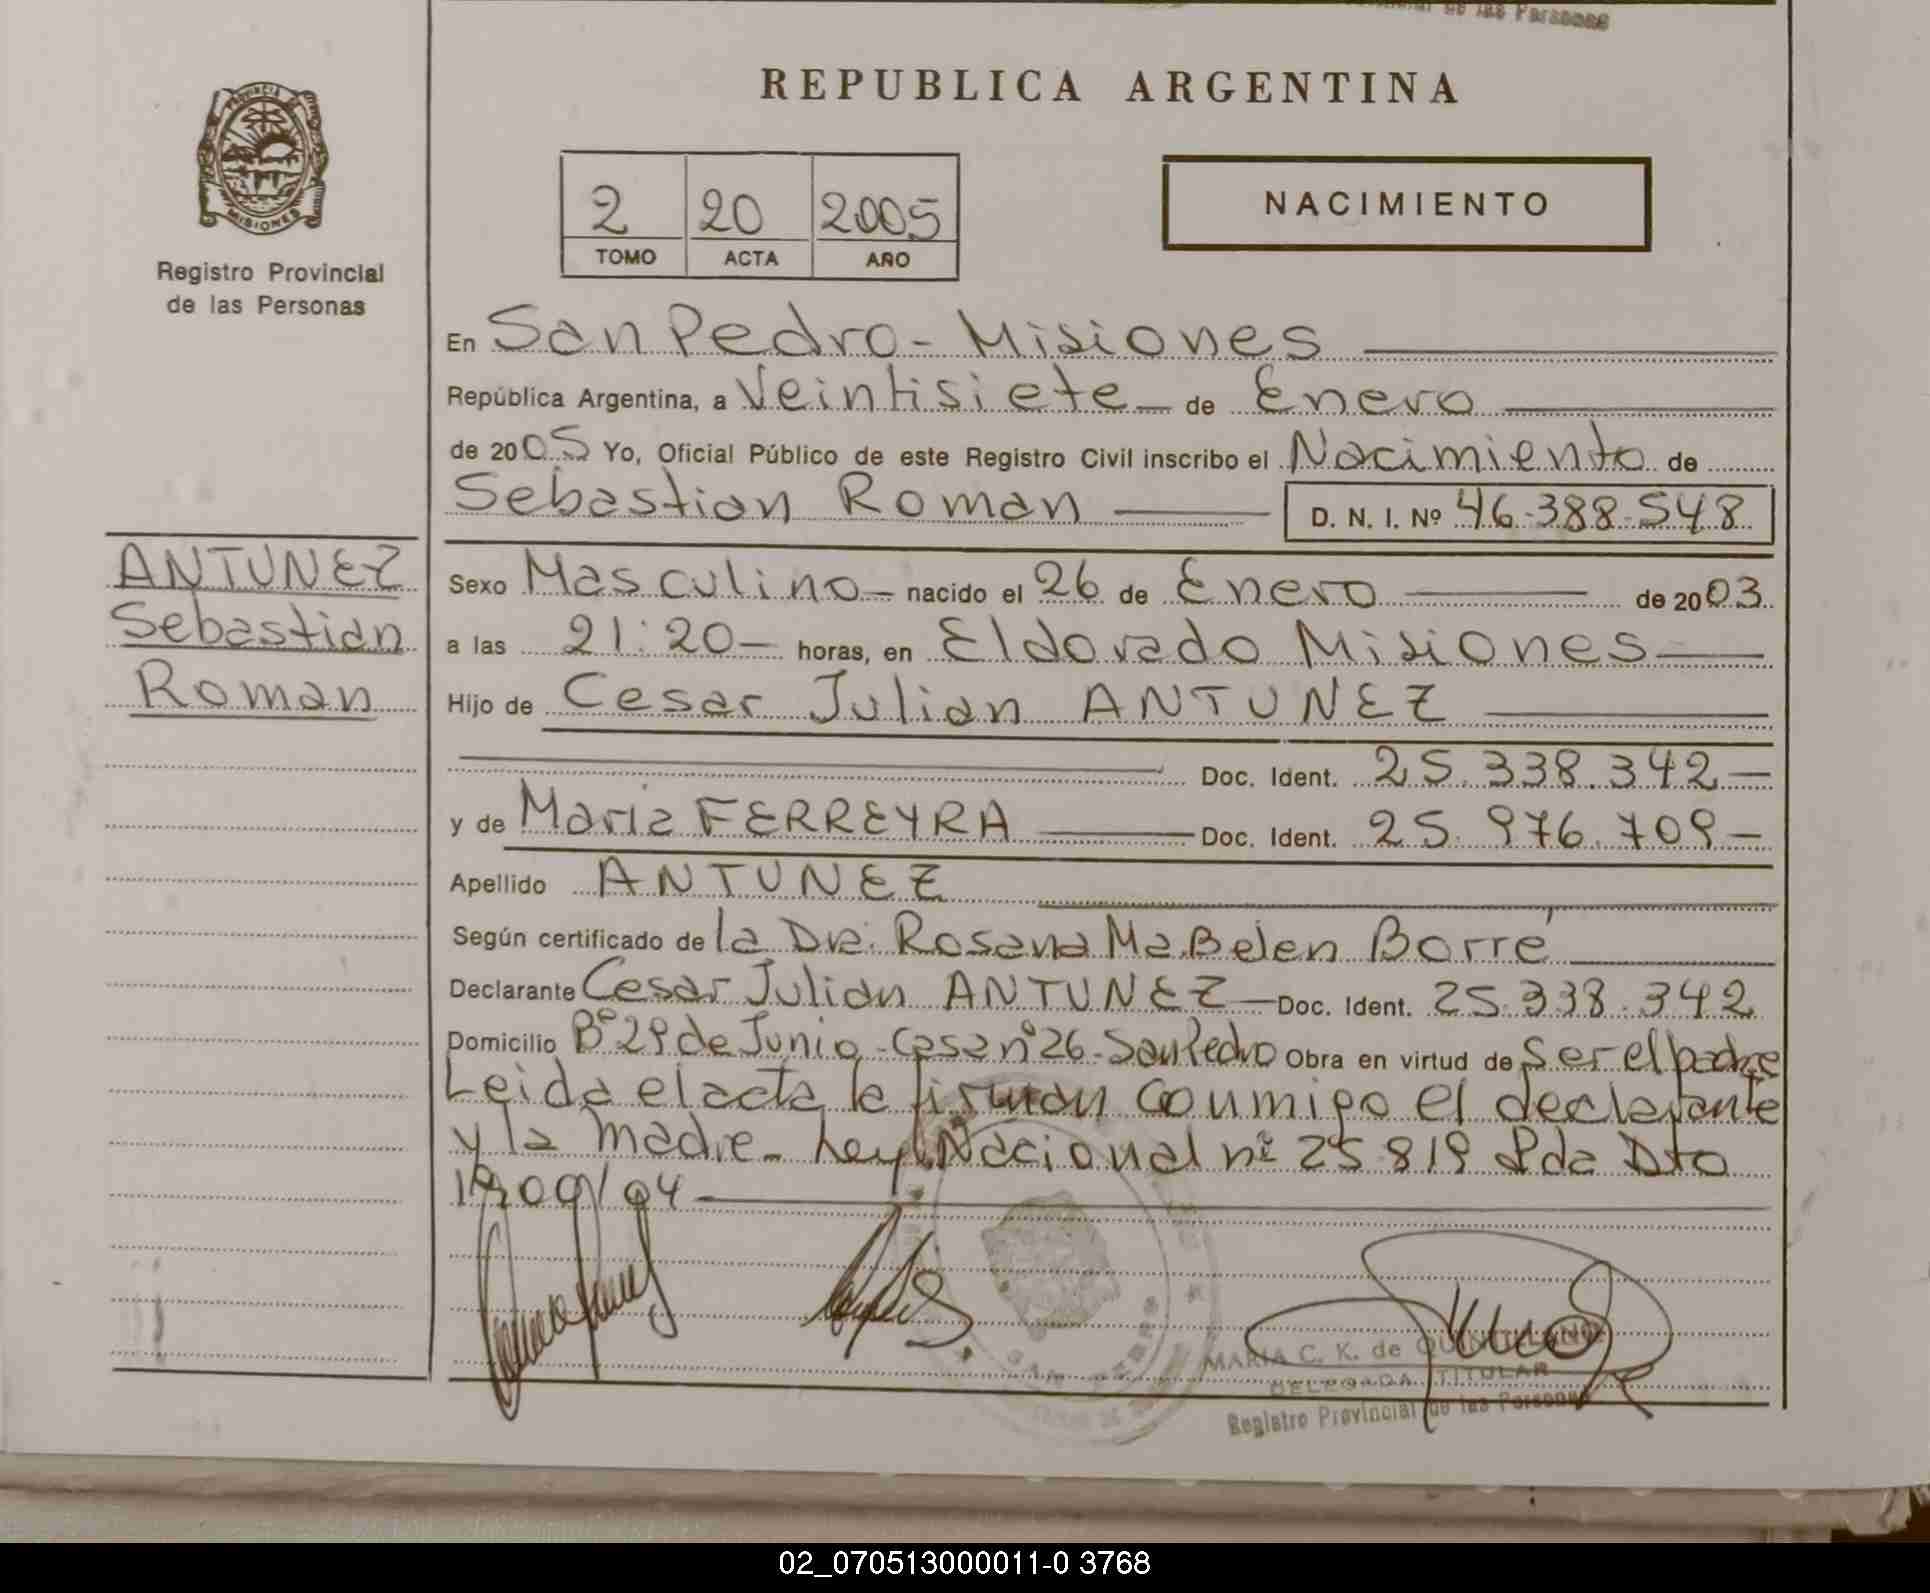 de las Personas
REPUBLICA ARGENTINA
PROVINCIA DE
MISIONES
Registro Provincial
de las Personas
2 20 2005
TOMO ACTA AÑO
NACIMIENTO
En San Pedro - Misiones
República Argentina, a Veintisiete de Enero
de 2005 Yo, Oficial Público de este Registro Civil inscribo el Nacimiento de
Sebastian Roman
D. N. I. Nº 46.388.548
ANTUNEZ
Sebastian
Roman
Sexo Masculino nacido el 26 de Enero de 2003
a las 21:20 horas, en Eldorado Misiones
Hijo de Cesar Julian ANTUNEZ
Doc. Ident. 25.338.342
y de Maria FERREYRA Doc. Ident. 25.976.709
Apellido ANTUNEZ
Según certificado de la Dra. Rosana Ma. Belen Borré
Declarante Cesar Julian ANTUNEZ Doc. Ident. 25.338.342
Domicilio Bº 29 de Junio - Casa nº 26 - San Pedro Obra en virtud de Ser el padre
Leida el acta la firman conmigo el declarante
y la madre - Ley Nacional nº 25.819 Pda Dto
1900/04
MARIA C. K. de QUINTILLANO
DELEGADA TITULAR
Registro Provincial de las Personas
02_070513000011-0 3768